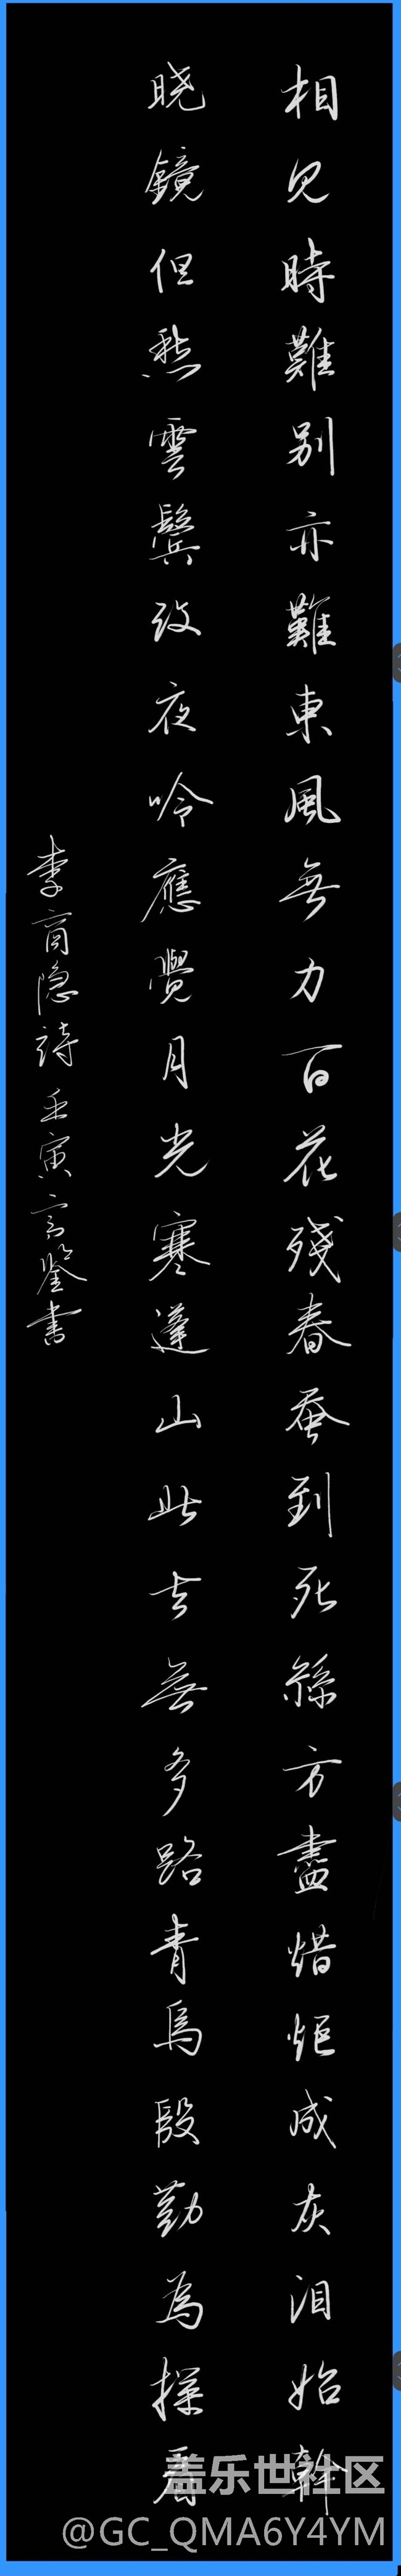 相見時難别亦難東風無力百花殘春蚕到死絲方盡蜡炬成灰泪始幹
晓鏡但愁雲鬓改夜吟應覺月光寒蓬山此去無多路青鳥殷勤為探看
李商隐詩壬寅言鑒書
盖乐世社区
@GC_QMA6Y4YM